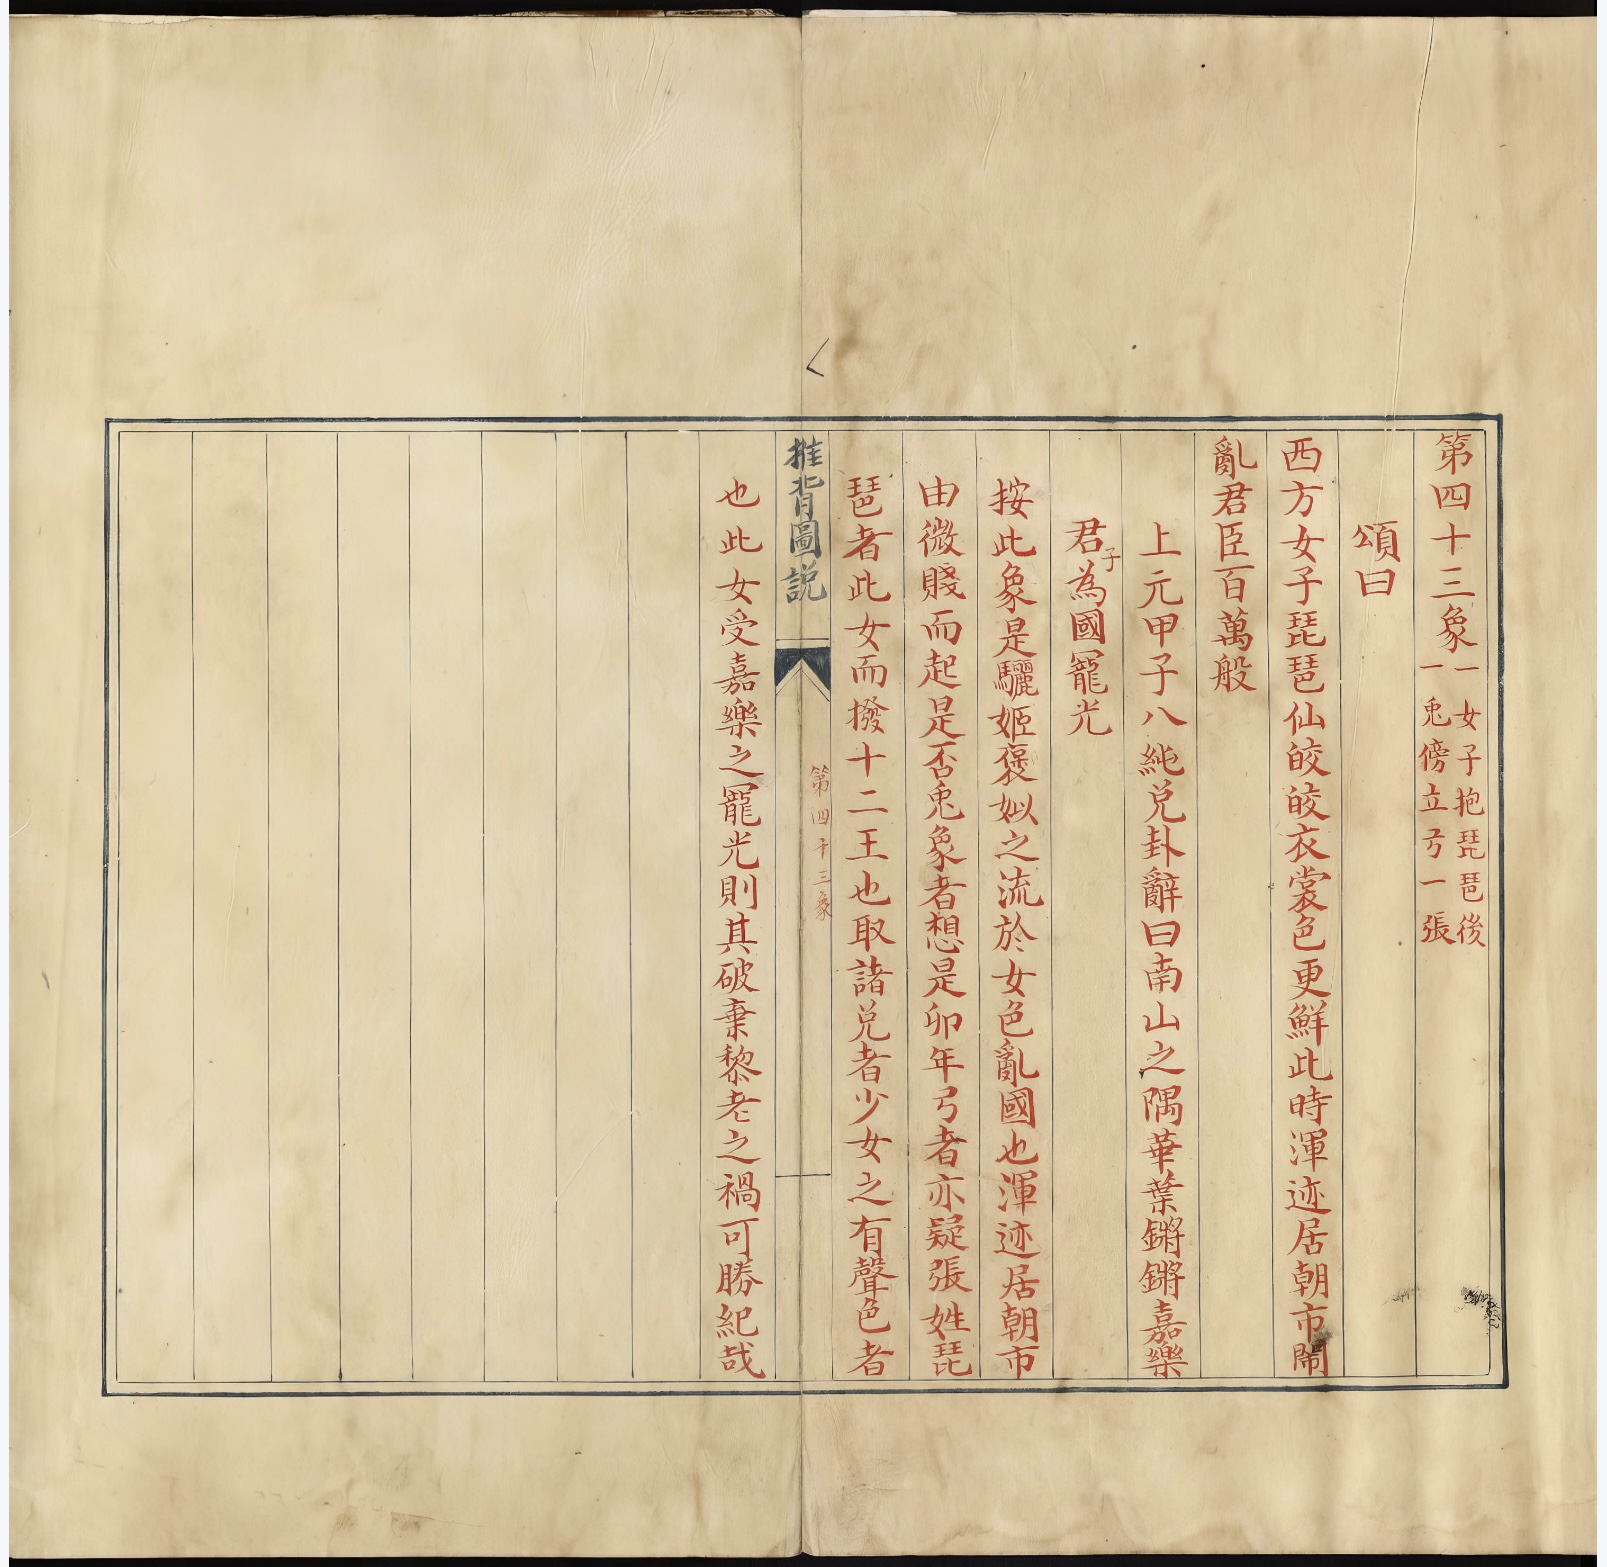 第四十三象
一女子抱琵琶後
一兎傍立弓一張
頌曰
西方女子琵琶仙皎皎衣裳色更鮮此時渾迹居朝市鬧
亂君臣百萬般
上元甲子八純兑卦辭曰南山之隅華葉鏘鏘嘉樂
君子為國寵光
按此象是驪姬褒姒之流於女色亂國也渾迹居朝市
由微賤而起是否兎象者想是卯年弓者亦疑張姓琵
琶者此女而撥十二王也取諸兑者少女之有聲色者
推背圖說
第四十三象
也此女受嘉樂之寵光則其破棄黎老之禍可勝紀哉